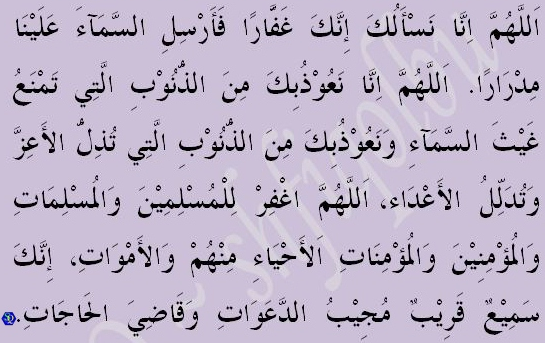 اَللَّهُمَّ اِنَّا نَسْأَلُكَ إِنَّكَ غَفَّارًا فَأَرْسِلِ السَّمَآءَ عَلَيْنَا
مِدْرَارًا. اَللَّهُمَّ اِنَّا نَعُوْذُبِكَ مِنَ الذُّنُوْبِ الَّتِي تَمْنَعُ
غَيْثَ السَّمَآءِ وَنَعُوْذُبِكَ مِنَ الذُّنُوْبِ الَّتِي تُذِلُّ الأَعِزَّ
وَتُدَلِّلُ الأَعْدَاء، اَللَّهُمَّ اغْفِرْ لِلْمُسْلِمِيْنَ وَالْمُسْلِمَاتِ
وَالْمُؤْمِنِيْنَ وَالْمُؤْمِنَاتِ اَلأَحْيَاءِ مِنْهُمْ وَالأَمْوَاتِ، إِنَّكَ
سَمِيْعٌ قَرِيْبٌ مُجِيْبُ الدَّعَوَاتِ وَقَاضِيَ الحَاجَاتِ.